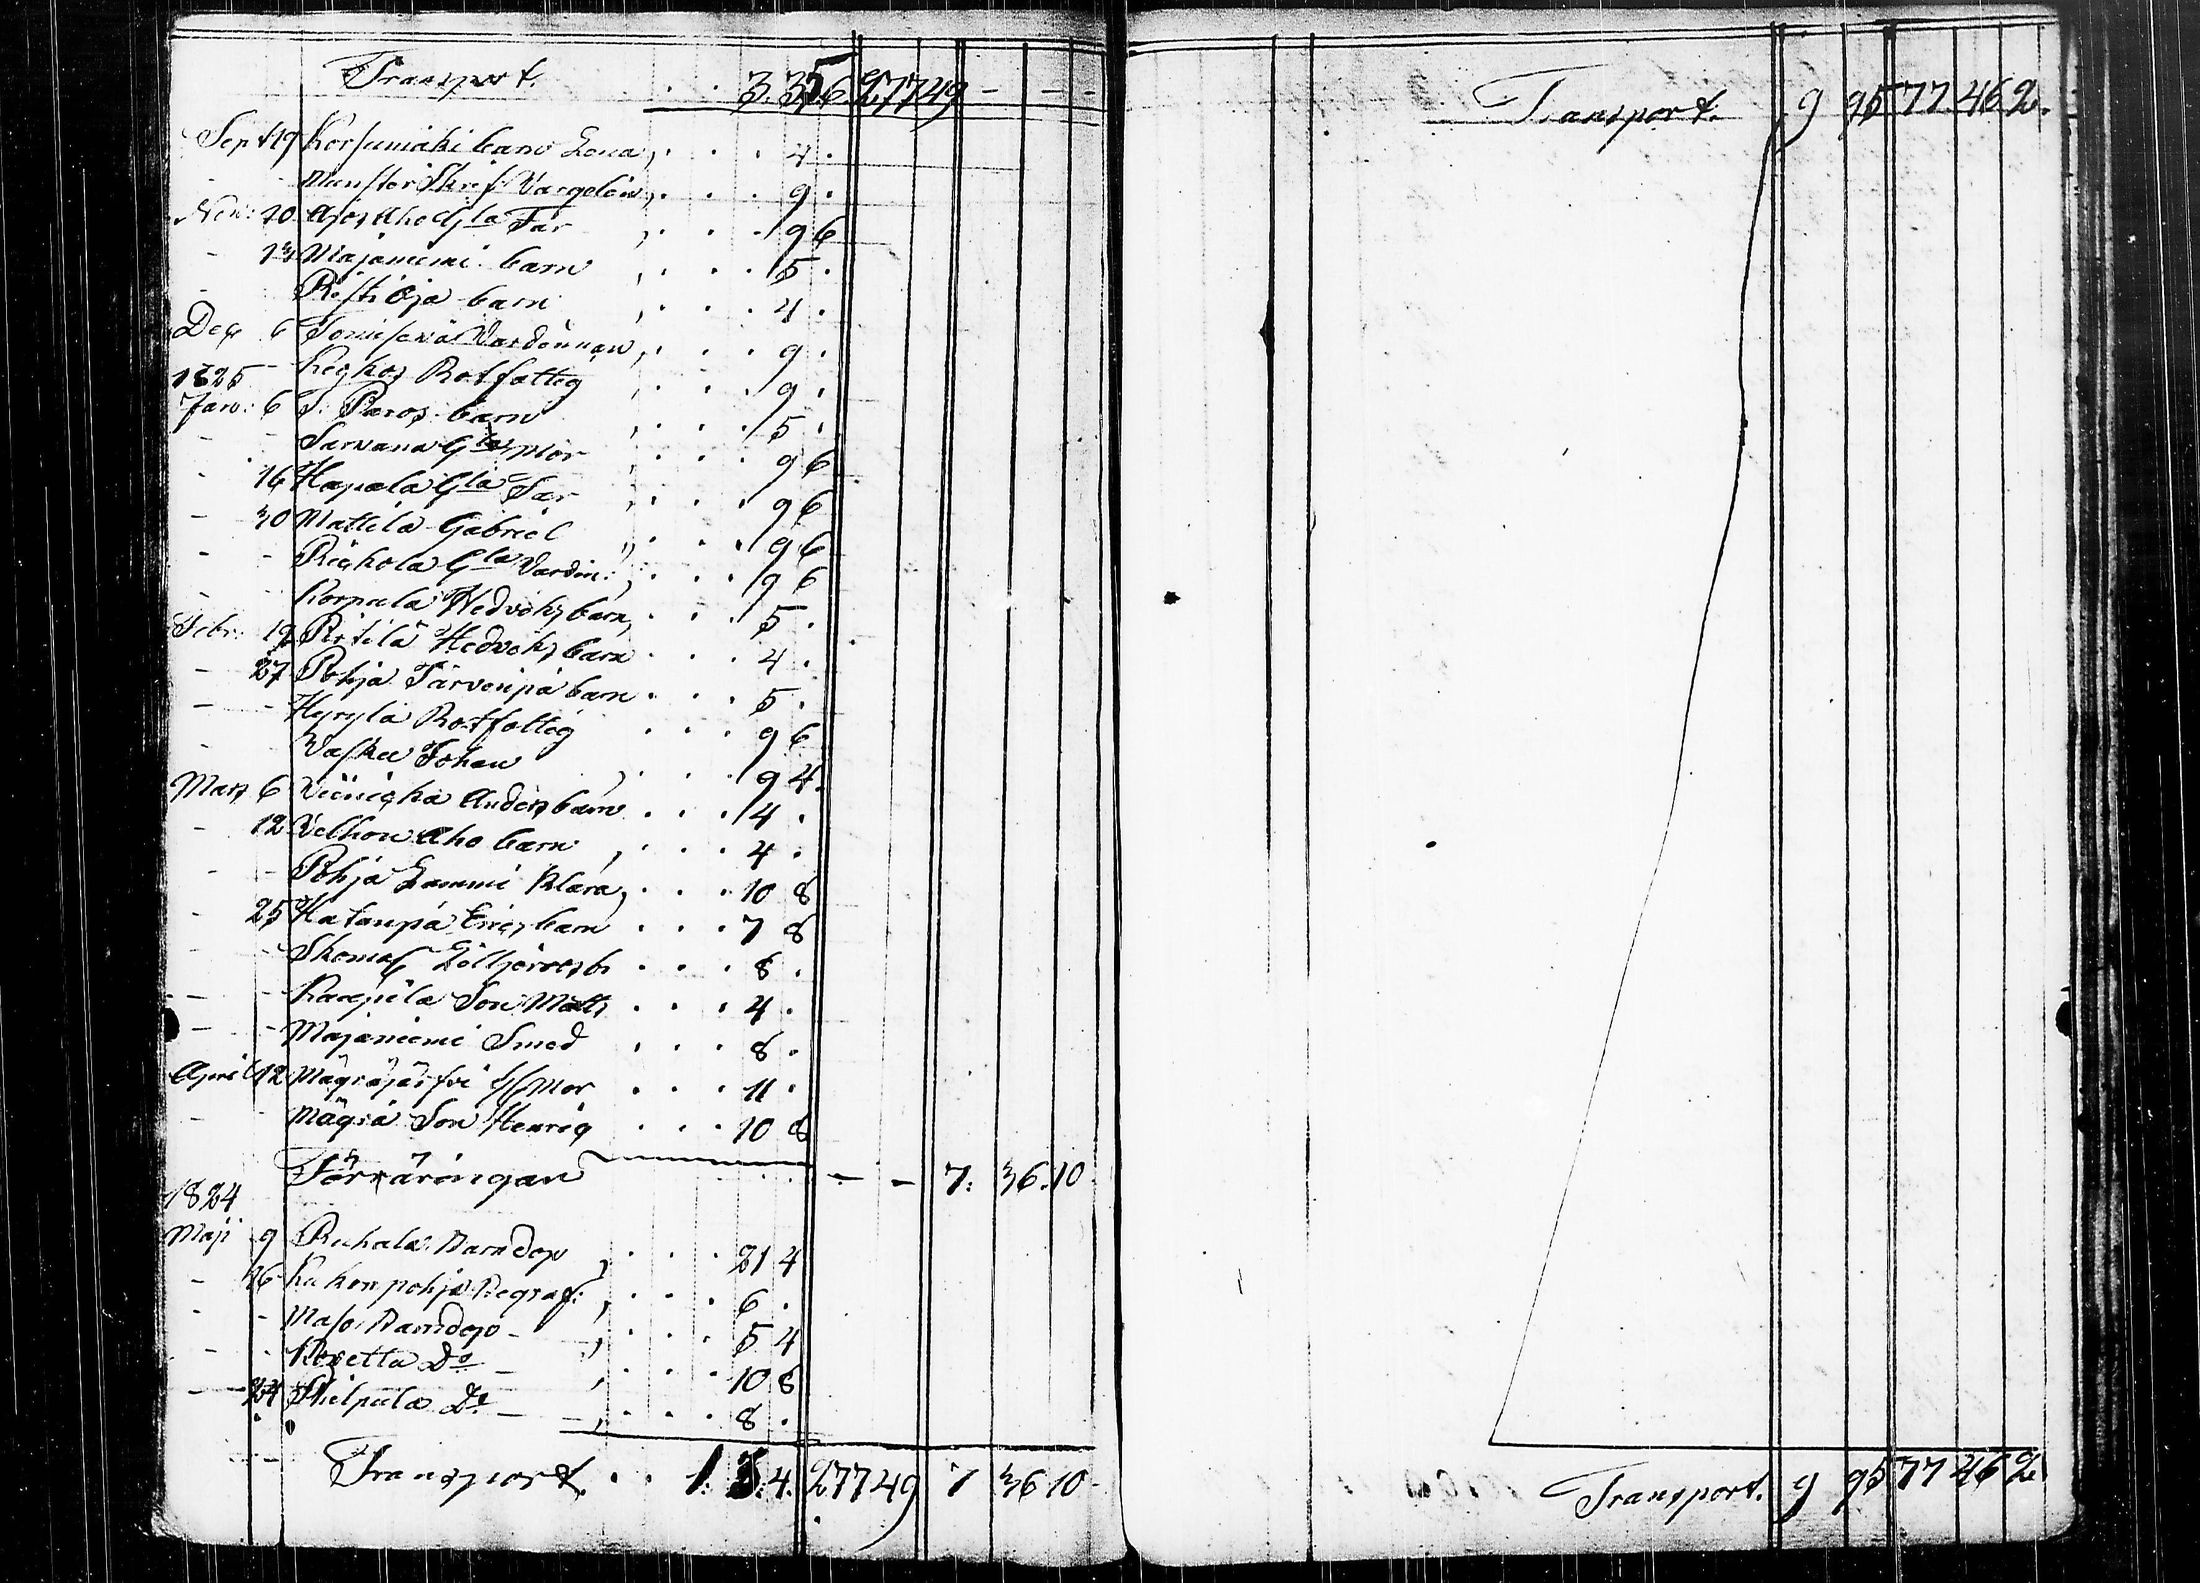 Transport. . . 3. 356. 27749 - - -
Sept 19 Korsumäki barn Lena, . . . 4 .
- - Munster Skrif: Vargelin, . . . 9 .
Nov: 20 Ahog Gla Far , . . . 9 6
- 14 Majaniemi barn , . . . 5 .
- Ristioja barn , . . . 4 .
Dec 6 Värdinnan , . . . 9 .
- Rotfattig , . . . 9 .
1825
Janv: 6 barn , . . . 5 .
- - Sarvana Gla Mor , . . . 9 6
- 16 Hapala Gla Far , . . . 9 6
- 30 Mattila Gabriel , . . . 9 6
- - Gla Värdin: , . . . 9 6
- - Korpula Hedvigs barn, . . . 5 .
Febr: 12 Pirtilä Hedvigs barn . . . 4 .
- 27 Pohja Järvenpä barn . . . 5 .
- - Hyrylä Rotfattig . . . 9 6
- Johan , . . . 9 4.
Mars 6 Anders barn . . . 4 .
- 12 Velhon Aho barn , . . . 4 .
- - Pohja Lammi Klara, . . . 10 8
- 25 Hatanpä Erics barn . . . 7 8
- - . . . 8 .
- - Kaupila Son Matts . . . 4 .
- - Majaniemi Smed . . . 8 .
April 12 Mägräjärfvi Mor . . . 11 .
- Mägrä Son Henric . . . 10 8
Förräringar - - 7. 36. 10
1824
Maji 9 Ruhala Barndop , . . . 21 4
- 16 Kukonpohja Begraf: , . . . 6 .
- - Maso Barndop - , . . . 5 4
- - Do - , . . . 10 8
- 24 Kielpula Do - , . . . 8 .
Transport. . . 1. 3. 4. 27749 7 36 10
Transport. 9 95 77 46 2.
Transport. 9 95 77 46 2